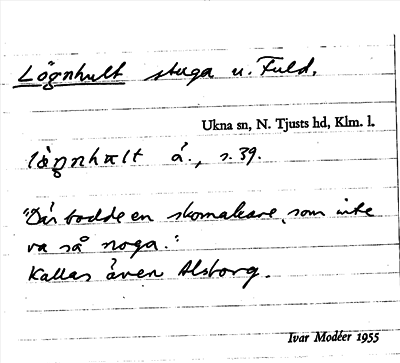 Lögnhult stuga u. Fuld.
Ukna sn, N. Tjusts hd, Klm. l.
lö̀gnhult å., s. 39.
"Där bodde en skomakare, som inte
va så noga."
Kallas även Alsborg.
Ivar Modéer 1955